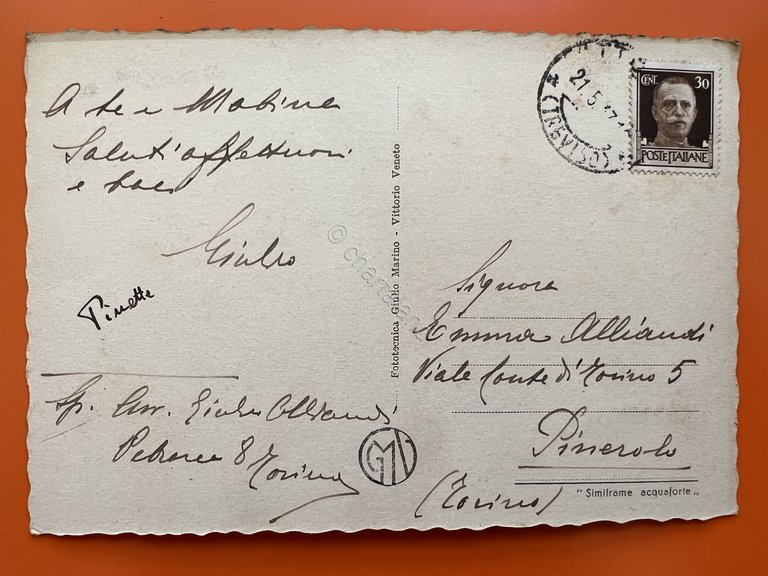 A te e Mabina
Saluti affettuosi
e baci
Giulio
Pinette
Sp. Avv. Giulio Alliaudi
Petrarca 8 Torino
Fototecnica Giulio Marino - Vittorio Veneto
21.5
(TREVISO)
CENT. 30
POSTE ITALIANE
Signora
Emma Alliaudi
Viale Conte di Torino 5
Pinerolo
(Torino)
"Similrame acquaforte"
GM
©